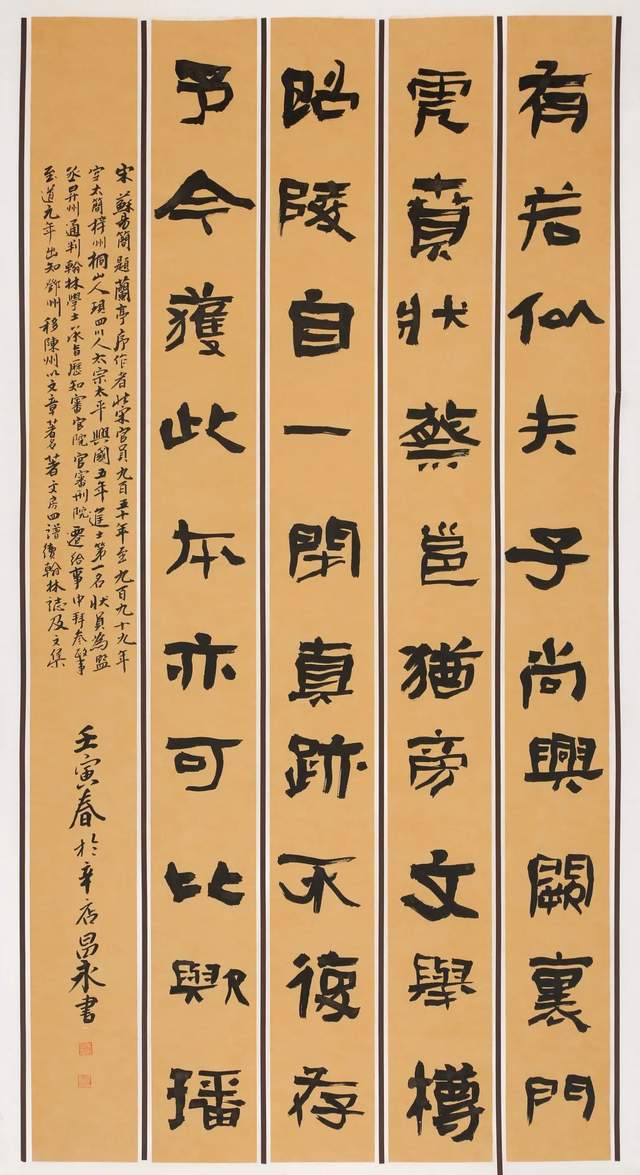 有若似夫子尚興闕裏門
虎賁狀蔡邕猶旁文舉樽
昭陵自一閉真跡不復存
予今獲此本亦可比歟播
宋蘇易簡題蘭亭序作者北宋官員九百五十年至九百九十九年
字太簡梓州桐山人現四川人太宗太平興國五年進士第一名狀員為監
丞昇州通判翰林學士承旨歷知審官院官審刑院遷給事中拜參政事
至道元年出知鄧州移陳州以文章著名著文房四譜續翰林誌及文集
壬寅春於辛店昌永書